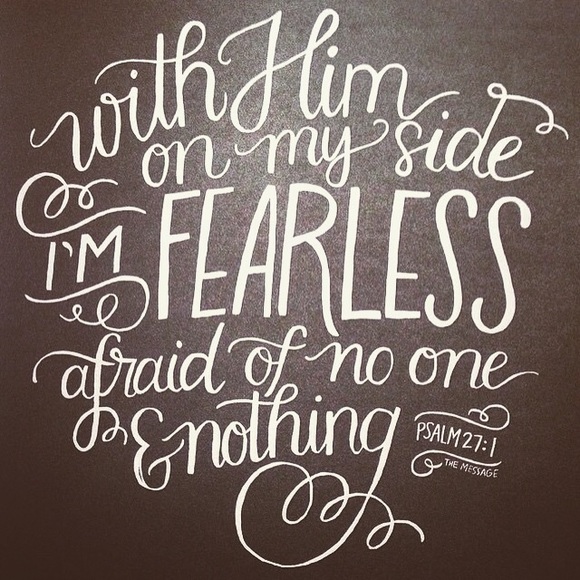 with Him
on my side
I'M FEARLESS
afraid of no one
& nothing
PSALM 27:1
THE MESSAGE